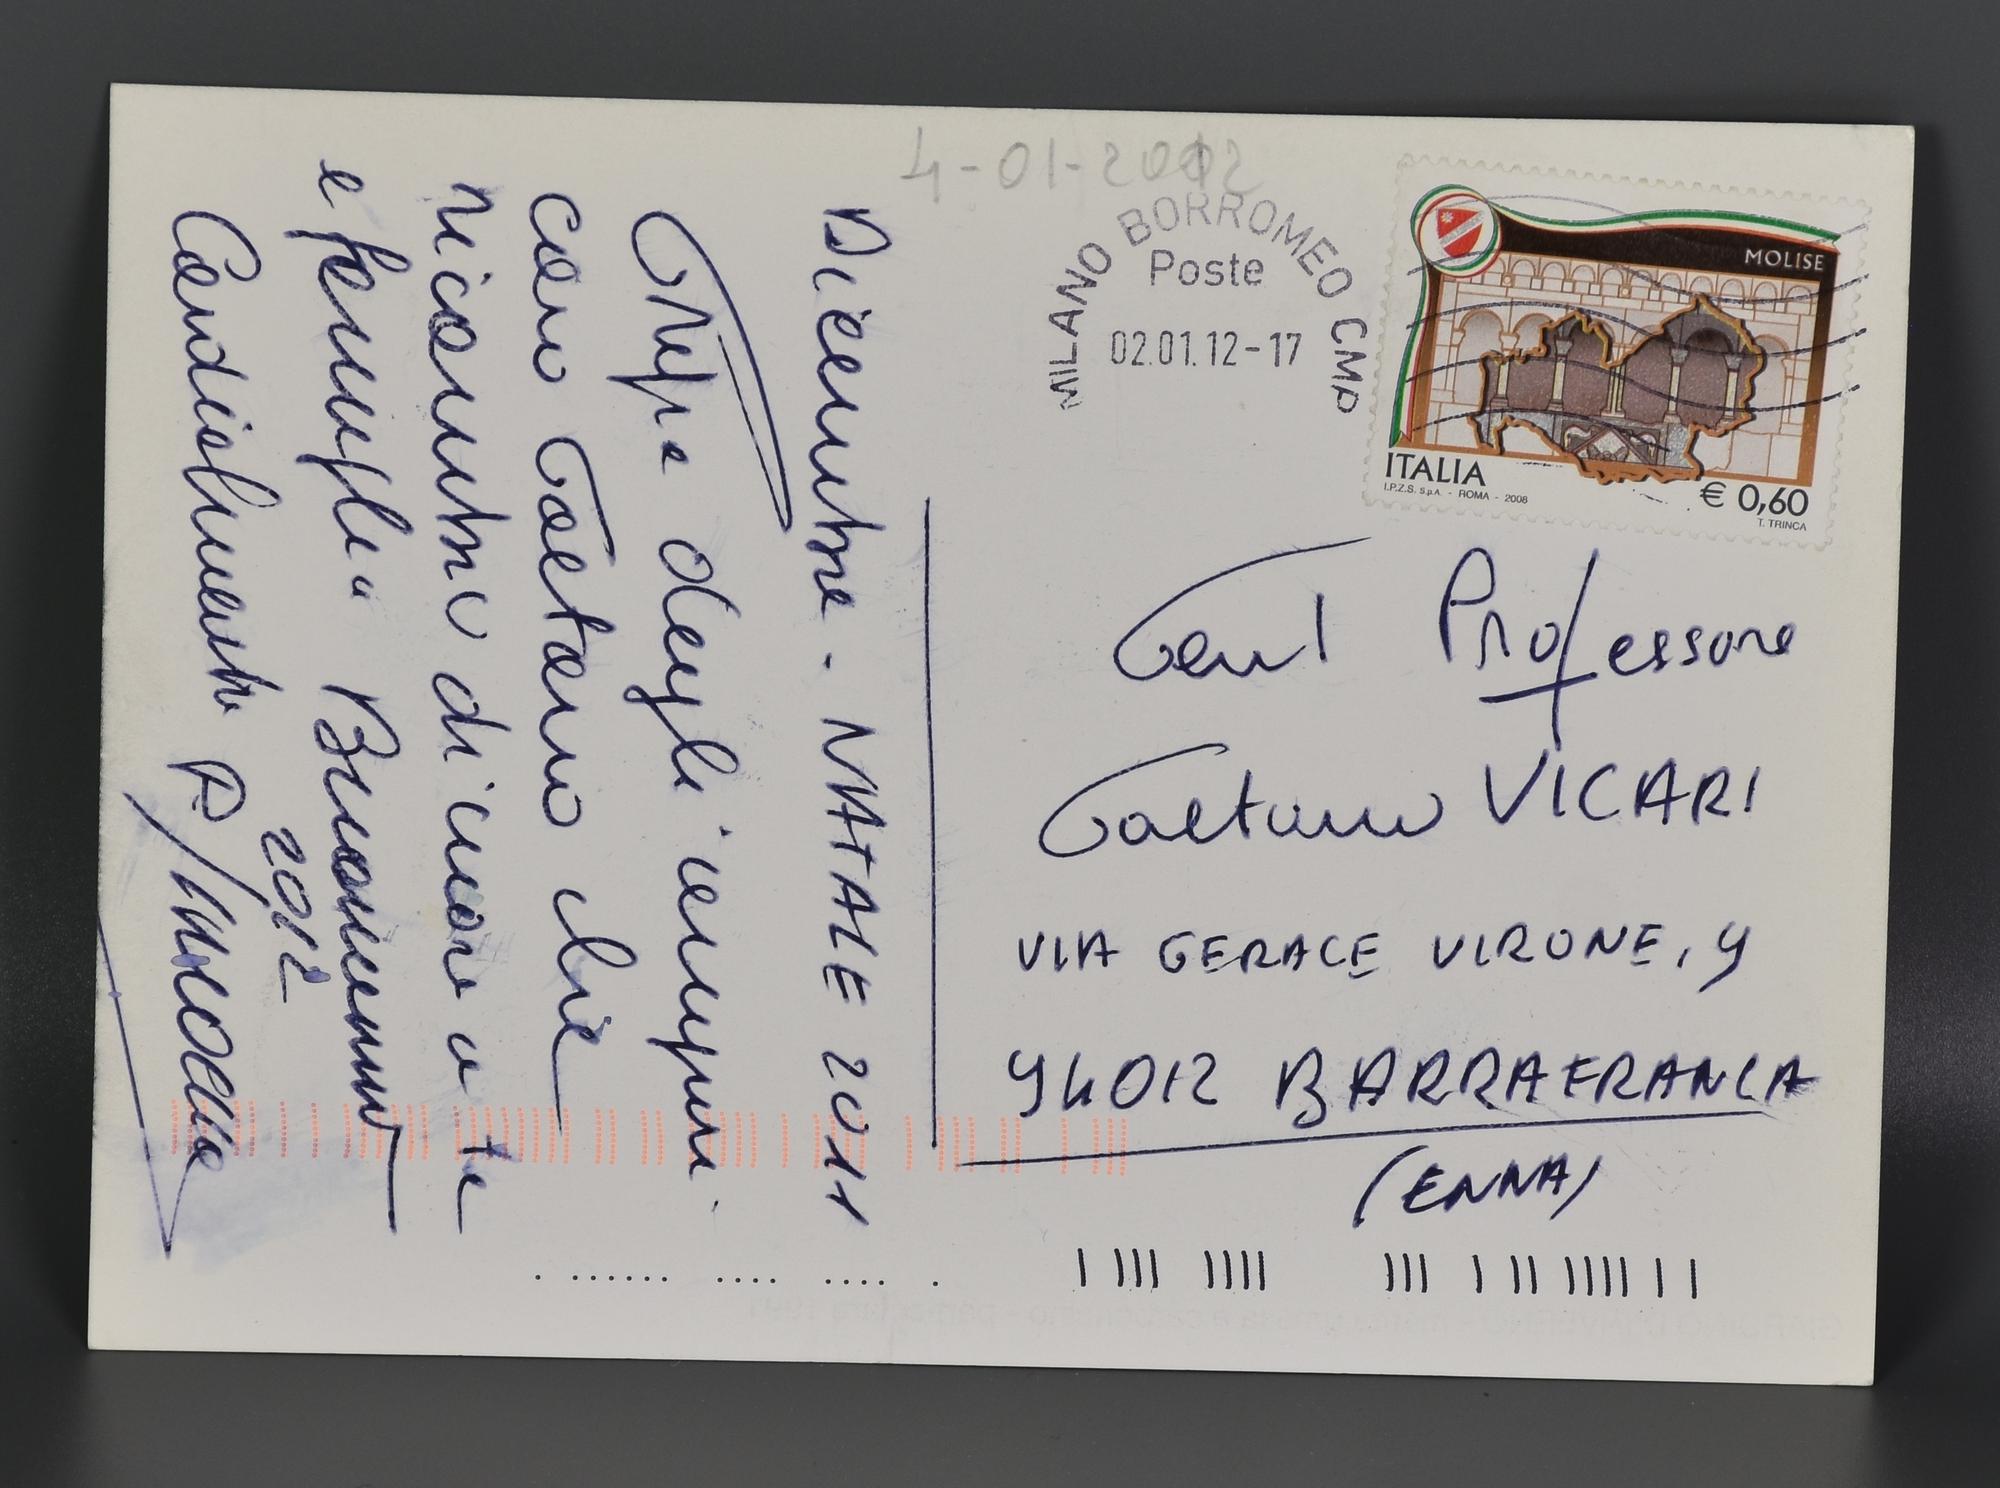 4-01-2012
MILANO BORROMEO CMP
Poste
02.01.12-17
MOLISE
ITALIA
I.P.Z.S. S.p.A. - ROMA - 2008
€ 0,60
T. TRINCA
Gent Professore
Gaetano VICARI
VIA GERACE VIRONE, 9
94012 BARRAFRANCA
(ENNA)
Dicembre - NATALE 2011
degli auguri
caro Gaetano che
ricambio di cuore a te
e famiglia. Buonanno
2012
Cordialmente